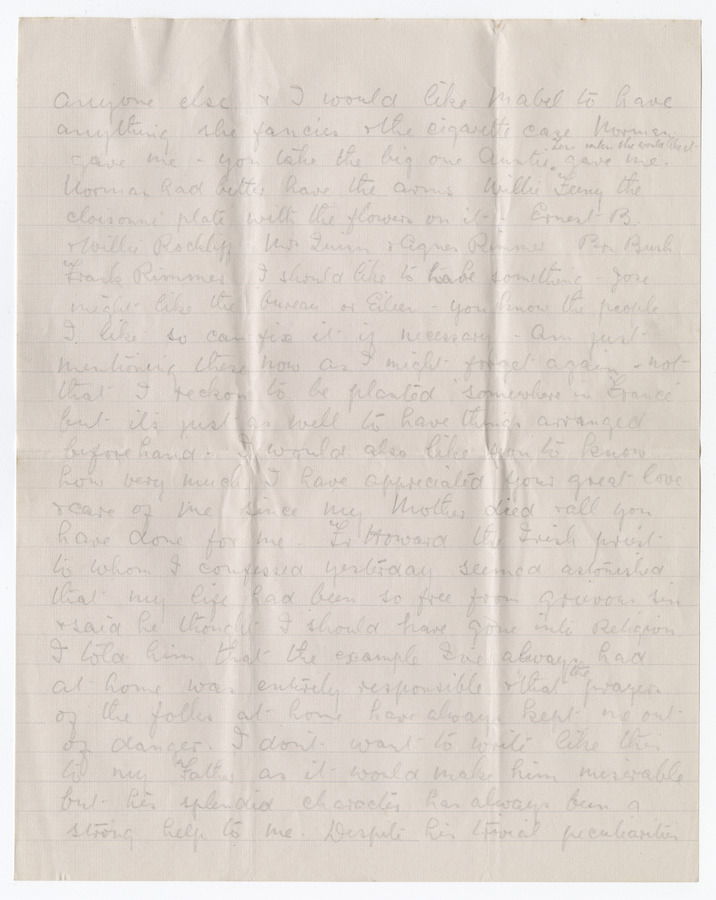 anyone else & I would like Mabel to have
anything she fancies & the cigarette case Norman
gave me - you take the big one Auntie gave me.
Norman had better have the arms Willie Feeny the
cloisonné plate with the flowers on it - Ernest B.
& Willie Rockliff Mrs Quinn & Agnes Rimmer Bush
Frank Rimmer I should like to have something - Jose
might like the bureau or Eileen - you know the people
I like so can fix it if necessary - Am just
mentioning these now as I might forget again - not
that I reckon to be planted "somewhere in France"
but its just as well to have things arranged
beforehand. I would also like you to know
how very much I have appreciated your great love
& care of me since my Mother died & all you
have done for me. Fr Howard the Irish priest
to whom I confessed yesterday seemed astonished
that my life had been so free from grievous sin
& said he thought I should have gone into Religion
I told him that the example I've always had
at home was entirely responsible & that the prayers
of the folks at home have always kept me out
of danger. I don't want to write like this
to my Father as it would make him miserable
but his splendid character has always been a
strong help to me. Despite his trivial peculiarities